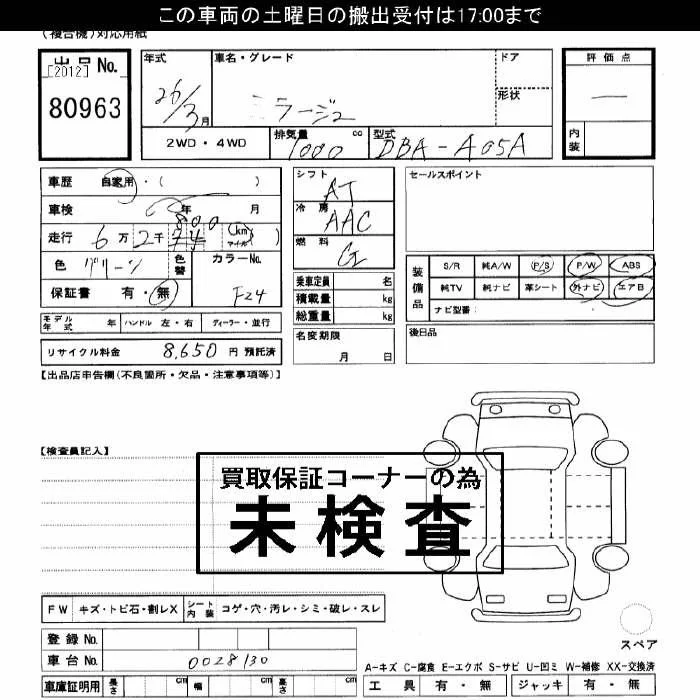 この車両の土曜日の搬出受付は17:00まで
(複合機)対応用紙
出品No. [2012]
80963
年式 26/3月
車名・グレード ミラージュ
ドア
形状
評価点
内装
2WD・4WD
排気量 1000 cc
型式 DBA-A05A
車歴 自家用・( )
車検 年 月
走行 6万2千 km マイル
色 グリーン
色替
カラーNo. F24
保証書 有・無
シフト AT
冷房 AAC
燃料 G
乗車定員 名
積載量 kg
総重量 kg
セールスポイント
装備品
S/R 純A/W P/S P/W ABS
純TV 純ナビ 革シート 外ナビ エアB
ナビ型番:
モデル年式 年 ハンドル 左・右 ディーラー・並行
名変期限
月 日
後日品
リサイクル料金 8,650 円 預託済
【出品店申告欄(不良個所・欠品・注意事項等)】
【検査員記入】
買取保証コーナーの為
未検査
FW キズ・トビ石・割レX シート内装 コゲ・穴・汚レ・シミ・破レ・スレ
登録No.
車台No. 0028130
車庫証明用 長さ cm 幅 cm 高さ cm
スペア
A-キズ C-腐食 E-エクボ S-サビ U-凹ミ W-補修 XX-交換済
工具 有・無 ジャッキ 有・無